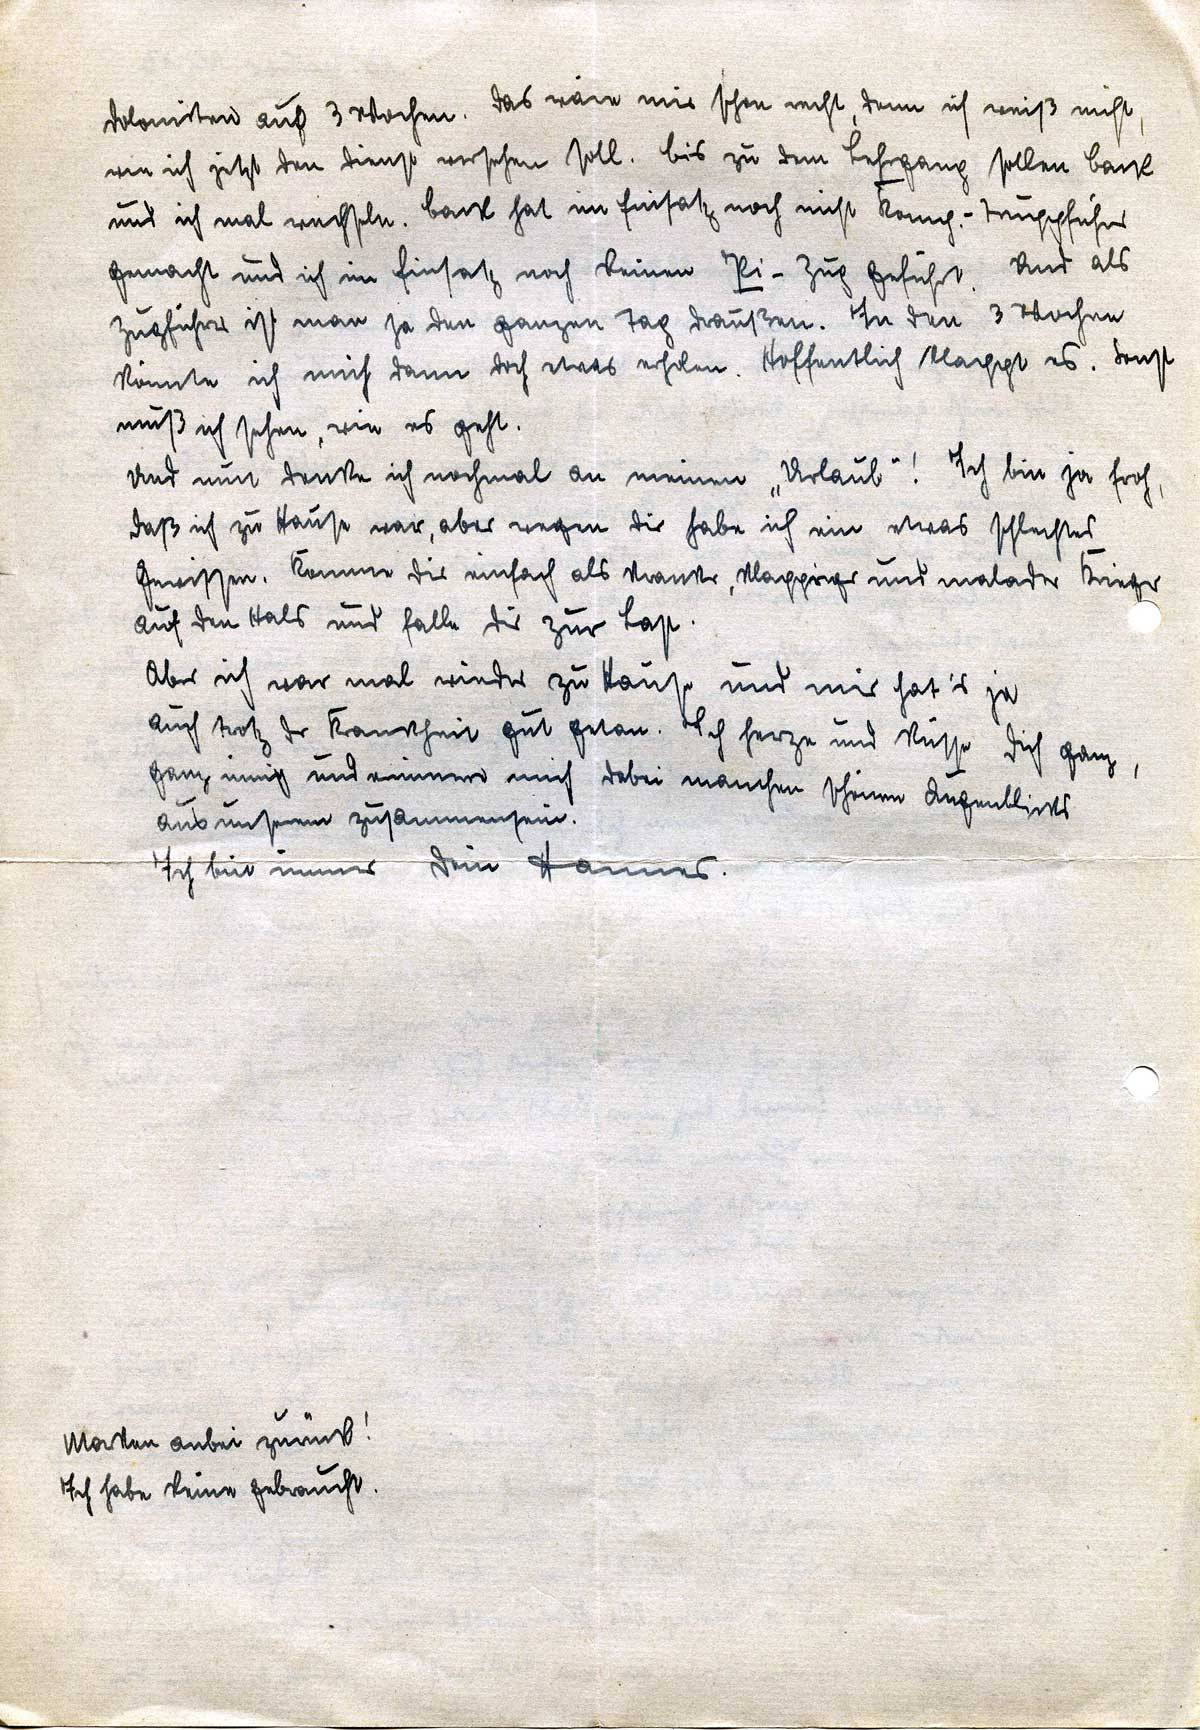 Dolomiten auf 3 Wochen. Das wäre mir schon recht, denn ich weiß nicht,
wie ich jetzt den Dienst versehen soll. Bis zu dem Lehrgang sollen Back
und ich mal wechseln. Back hat im Einsatz noch nicht Komp.-Truppführer
gemacht und ich im Einsatz noch keinen Pi-Zug geführt. Und als
Zugführer ist man ja den ganzen Tag draußen. In den 3 Wochen
könnte ich mich dann doch etwas erholen. Hoffentlich klappt es. Sonst
muß ich sehen, wie es geht.
Und nun denke ich nochmal an meinen „Urlaub"! Ich bin ja froh,
daß ich zu Hause war, aber wegen Dir habe ich ein etwas schlechtes
Gewissen. Komme Dir einfach als kranker, klappriger und malader Krieger
auf den Hals und falle Dir zur Last.
Aber ich war mal wieder zu Hause und mir hat's ja
auch trotz der Krankheit gut getan. Ich herze und küsse Dich ganz,
ganz innig und erinnere mich dabei manchen schönen Augenblicks
aus unserem Zusammensein.
Ich bin immer Dein Hannes.
Marken anbei zurück!
Ich habe keine gebraucht.